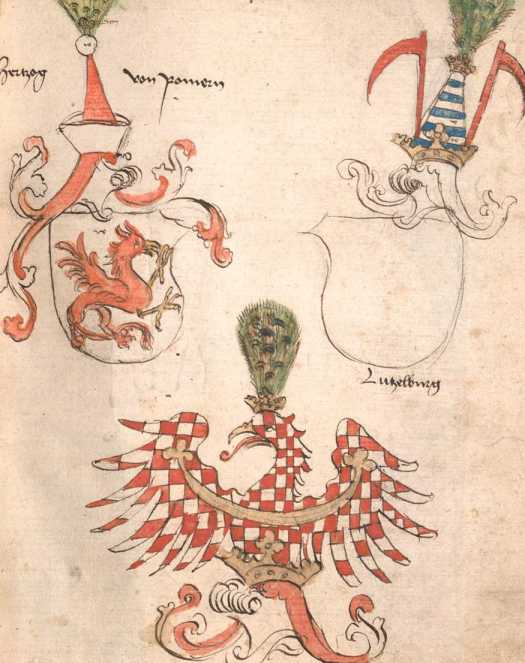 hertzog von pomern
Lutzelburg